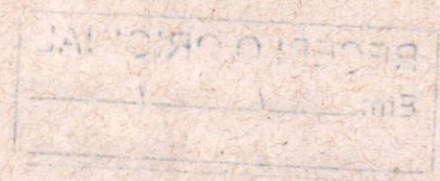 RECEBI O ORIGINAL
Em: ____/____/____